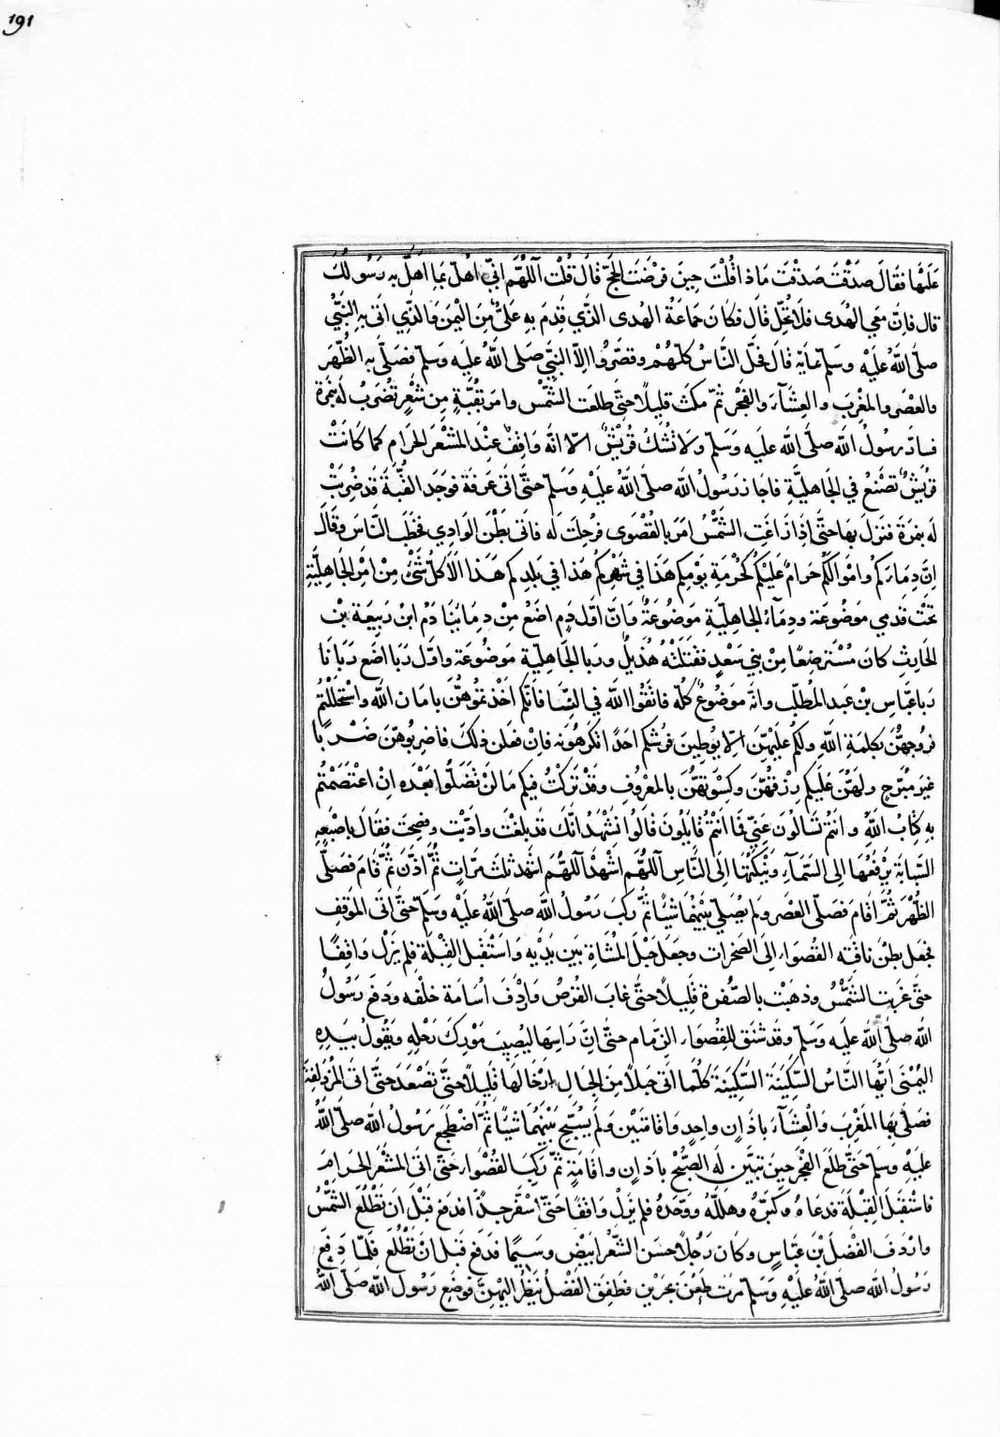 191
عَلَيْهَا فقَالَ صَدَقْتَ صَدَقْتَ مَاذا قُلْتَ حِينَ فَرَضْتَ الحَجَّ قَالَ قُلْتُ اَللّهُمَّ اِنِّي اُهلّ بِمَا اَهَلَّ بِهِ رَسُولُكَ
قال فَاِنَّ مَعِي الهَدى فلَا تحِلّ قَالَ فكَانَ جَمَاعَةُ الهَدى الذَّي قَدِمَ بِهِ عَلِيٌّ مِنَ اليْمَنَ وَالذَّي اَتى بِهِ النَّبِيُّ
صَلَّى اللّهُ عَلَيْهِ وَسَلَّم مَايَة قالَ فحَلَّ النَّاسُ كلّهُمْ وقصَّرُوا اِلاّ النَّبِيّ صَلى اللّهُ عَليْه وَسَلَّم فصَلَّى بِهِ الظُّهْرَ
وَالعَصْر وَالمَغْرِبَ وَالعِشَآءَ وَالفَجْر ثمّ مكَثَ قليلًا حتَّى طلعَت الشَّمْس وامَر بقُبَّةٍ مِن شَعْرٍ تُضْرَبُ لَه بِنَمرَة
فسارَ رسُولُ اللّه صَلَّى اللّه عَليْه وَسَلّم وَلَا تَشُكّ قُرَيْشٌ الّا انَّه وَاقِفٌ عِنْد المَشْعَر الحَرَامِ كمَا كَانَتْ
قُرَيْشٌ تصْنَعُ في الجَاهليَّةِ فاجَازَ رَسُولُ اللّه صَلَّى اللّهُ عَلَيْهِ وَسَلَّم حتَّى اتَى عَرفَة فوَجَد القُبَّةَ قَد ضُرِبَتْ
لَه بنمِرَة فنزلَ بهَا حتَّى اِذَا زَاغَتِ الشَّمْسُ امَرَ بِالقُصْوَى فرُحِلَتْ لَه فاتى بَطْنَ الوَادِي فخَطَبَ النَّاسَ وَقالَ
اِنَّ دِمَاءَكُم وَامْوَالَكُم حَرَامٌ عَلَيْكُم كحُرْمَةِ يَوْمِكم هَذَا في شَهْرِكُم هَذا في بَلَدِكُم هَذا الَا كُلُّ شَئٍ مِنْ امْرِ الجَاهِليَّةِ
تحْت قَدمي مَوْضُوعَة وَدِمَاءُ الجَاهِليَّةِ مَوْضُوعَةٌ وَانَّ اوّل دَمٍ اضَعُ مِنْ دِمَائنَا دَمُ ابْن رَبيعَة بْن
الحَارِثِ كانَ مُسْتَرضِعًا مِنْ بَنِي سَعْدٍ فَقَتَلَتْهُ هُذَيلٌ وَرِبَا الجَاهِليَّة مَوضُوعَة وَاوّل رِبَا اضَع رِبَانَا
رِبَا عبَّاسِ بْن عَبد المُطَّلِب وَانَّه مَوضُوعٌ كُلّه فاتَّقوُا اللّه فِي النِّسَا فَاِنَّكُم اَخَذْتمُوهُنَّ بِامَان اللّه وَاسْتَحلَلْتُمْ
فرُوجَهُنَّ بِكلِمَة اللّهِ وَلكُم عَليْهِنّ الَّا يُوطِينَ فرُشَكم احَدًا تكْرَهُونَه فاِنْ فعَلْنَ ذلكَ فَاضرِبُوهنّ ضَرْبًا
غَيْر مُبَرِّح ولهُنَّ عَلَيكم رِزْقهُنّ وَكِسْوَتهُنَّ بِالمَعْرُوفِ وَقَدْ تَركْتُ فيكم مَا لَنْ تَضلّوُا بَعْدَه اِنِ اعْتَصَمْتُمْ
بِهِ كِتَابُ اللّهِ وانتُمْ تسَالُونَ عَنِّي فمَا انتُمْ قَايلُونَ قالوُا نَشْهَد انّكَ قد بَلّغْتَ وَادَّيْتَ ونصَحْتَ فقالَ بِاصْبعِهِ
السَّبابَةِ يَرْفَعُهَا اِلى السَّمَآءِ وَيَنْكتُهَا اِلَى النَّاسِ اَللّهُمَّ اشْهَدْ اَللّهُمَّ اشْهَد ثلثَ مَرّاتٍ ثُمَّ اذَّنَ ثُمَّ قَامَ فصَلّى
الظُّهْرَ ثُمَّ اقامَ فَصَلّى العَصْرَ ولَم يُصَلّي بَيْنَهُمَا شَيْئًا ثُمَّ رَكبَ رَسُولُ اللّه صَلَّى اللّهُ عَلَيْهِ وَسَلَّم حَتَّى اتَى المَوْقِف
فجَعَل بطنَ ناقَتِه القُصْوَاء اِلَى الصَّخرَات وجَعَل جَبَل المُشَاةِ بَين يَدَيْه وَاسْتَقْبل القِبْلَة فلم يَزَلْ وَاقِفًا
حتَّى غَربَت الشَّمْسُ وَذهَبَتْ بالصُّفرَة قَلِيلًا حتَّى غابَ القرْصُ وَارْدَفَ اُسَامَة خَلْفَه ودَفَع رَسُولُ
اللّه صَلَّى اللّه عَلَيْه وَسَلَّم وَقَد شَنَقَ للِقُصْوَاء الزِّمَام حتَّى اِنَّ رَاسَهَا ليُصِيب مَوْرِكَ رَحْلِهِ وَيَقُولُ بيَدِهِ
اليُمْنَى اَيُّهَا النَّاسُ السَّكِينَة السَّكِينَة كلَّمَا اتَى جَبَلًا مِنَ الجِبَالِ ارْخَا لهَا قليلًا حتَّى تصْعَدَ حتَّى اتى المُزْدَلِفَةَ
فصَلَّى بِهَا المَغْرِبَ وَالْعِشَآءَ باذَانٍ واحِدٍ وَاقامَتَيْن ولَم يُسَبِّح بَيْنَهُمَا شَيْئًا ثُمَّ اضْطجَعَ رَسُولُ اللّه صَلّى اللّهُ
عَلَيْهِ وَسَلَّم حَتَّى طلَعَ الفَجْر حِينَ تبيَّن لَه الصُّبْحُ باذَانٍ واقَامَةٍ ثمّ رَكِبَ القُصْوَاء حَتَّى اتى المَشْعَر الحَرامَ
فاسْتقبَلَ القِبْلَة فدعَاهُ وَكبَّرَهُ وهلَّلَهُ وَوَحَّدَهُ فلم يَزَلْ وَاقفًا حَتَّى اسْفَر جِدًّا فدفعَ قَبْل ان تَطْلُعَ الشَّمْسُ
وارْدَفَ الفَضْلَ بْن عَبَّاسٍ وكَان رَجُلًا حسَنَ الشَّعْر ابيَضَ وَسِيمًا فدَفع قبْل انْ تَطْلُعَ فلمَّا دَفع
رَسُولُ اللّه صَلَّى اللّهُ عَلَيْهِ وَسَلَّم مَرَّت ظعُنٌ يجْرِينَ فطَفِقَ الفَضْلُ يَنْظُرُ اليْهِنَّ فوضَع رَسُولُ اللّه صَلَّى اللّهُ